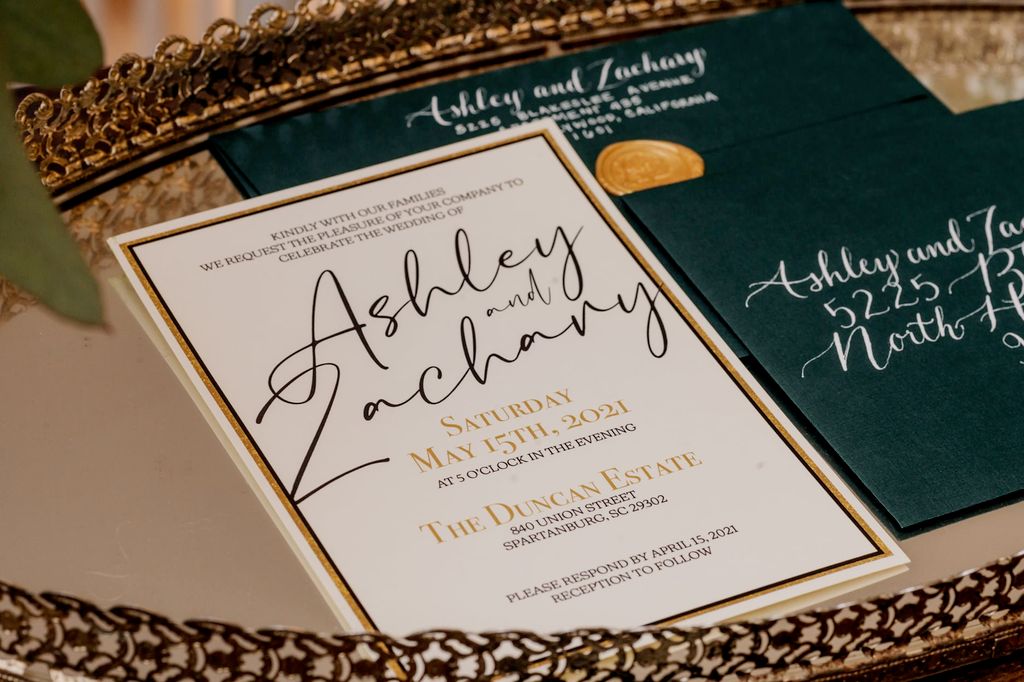 Ashley and Zachary
5225 BLAKESLEE AVENUE
CALIFORNIA
KINDLY WITH OUR FAMILIES
WE REQUEST THE PLEASURE OF YOUR COMPANY TO
CELEBRATE THE WEDDING OF
Ashley
and
Zachary
SATURDAY
MAY 15TH, 2021
AT 5 O'CLOCK IN THE EVENING
THE DUNCAN ESTATE
840 UNION STREET
SPARTANBURG, SC 29302
PLEASE RESPOND BY APRIL 15, 2021
RECEPTION TO FOLLOW
Ashley and Zac
5225
North